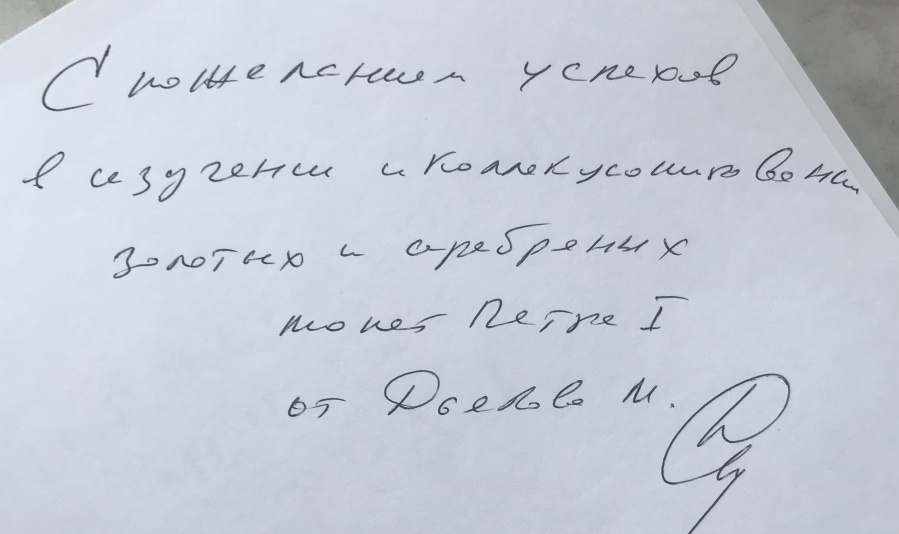 С пожеланием успехов
в изучении и коллекционировании
золотых и серебреных
монет Петра I
от Дьякова М.